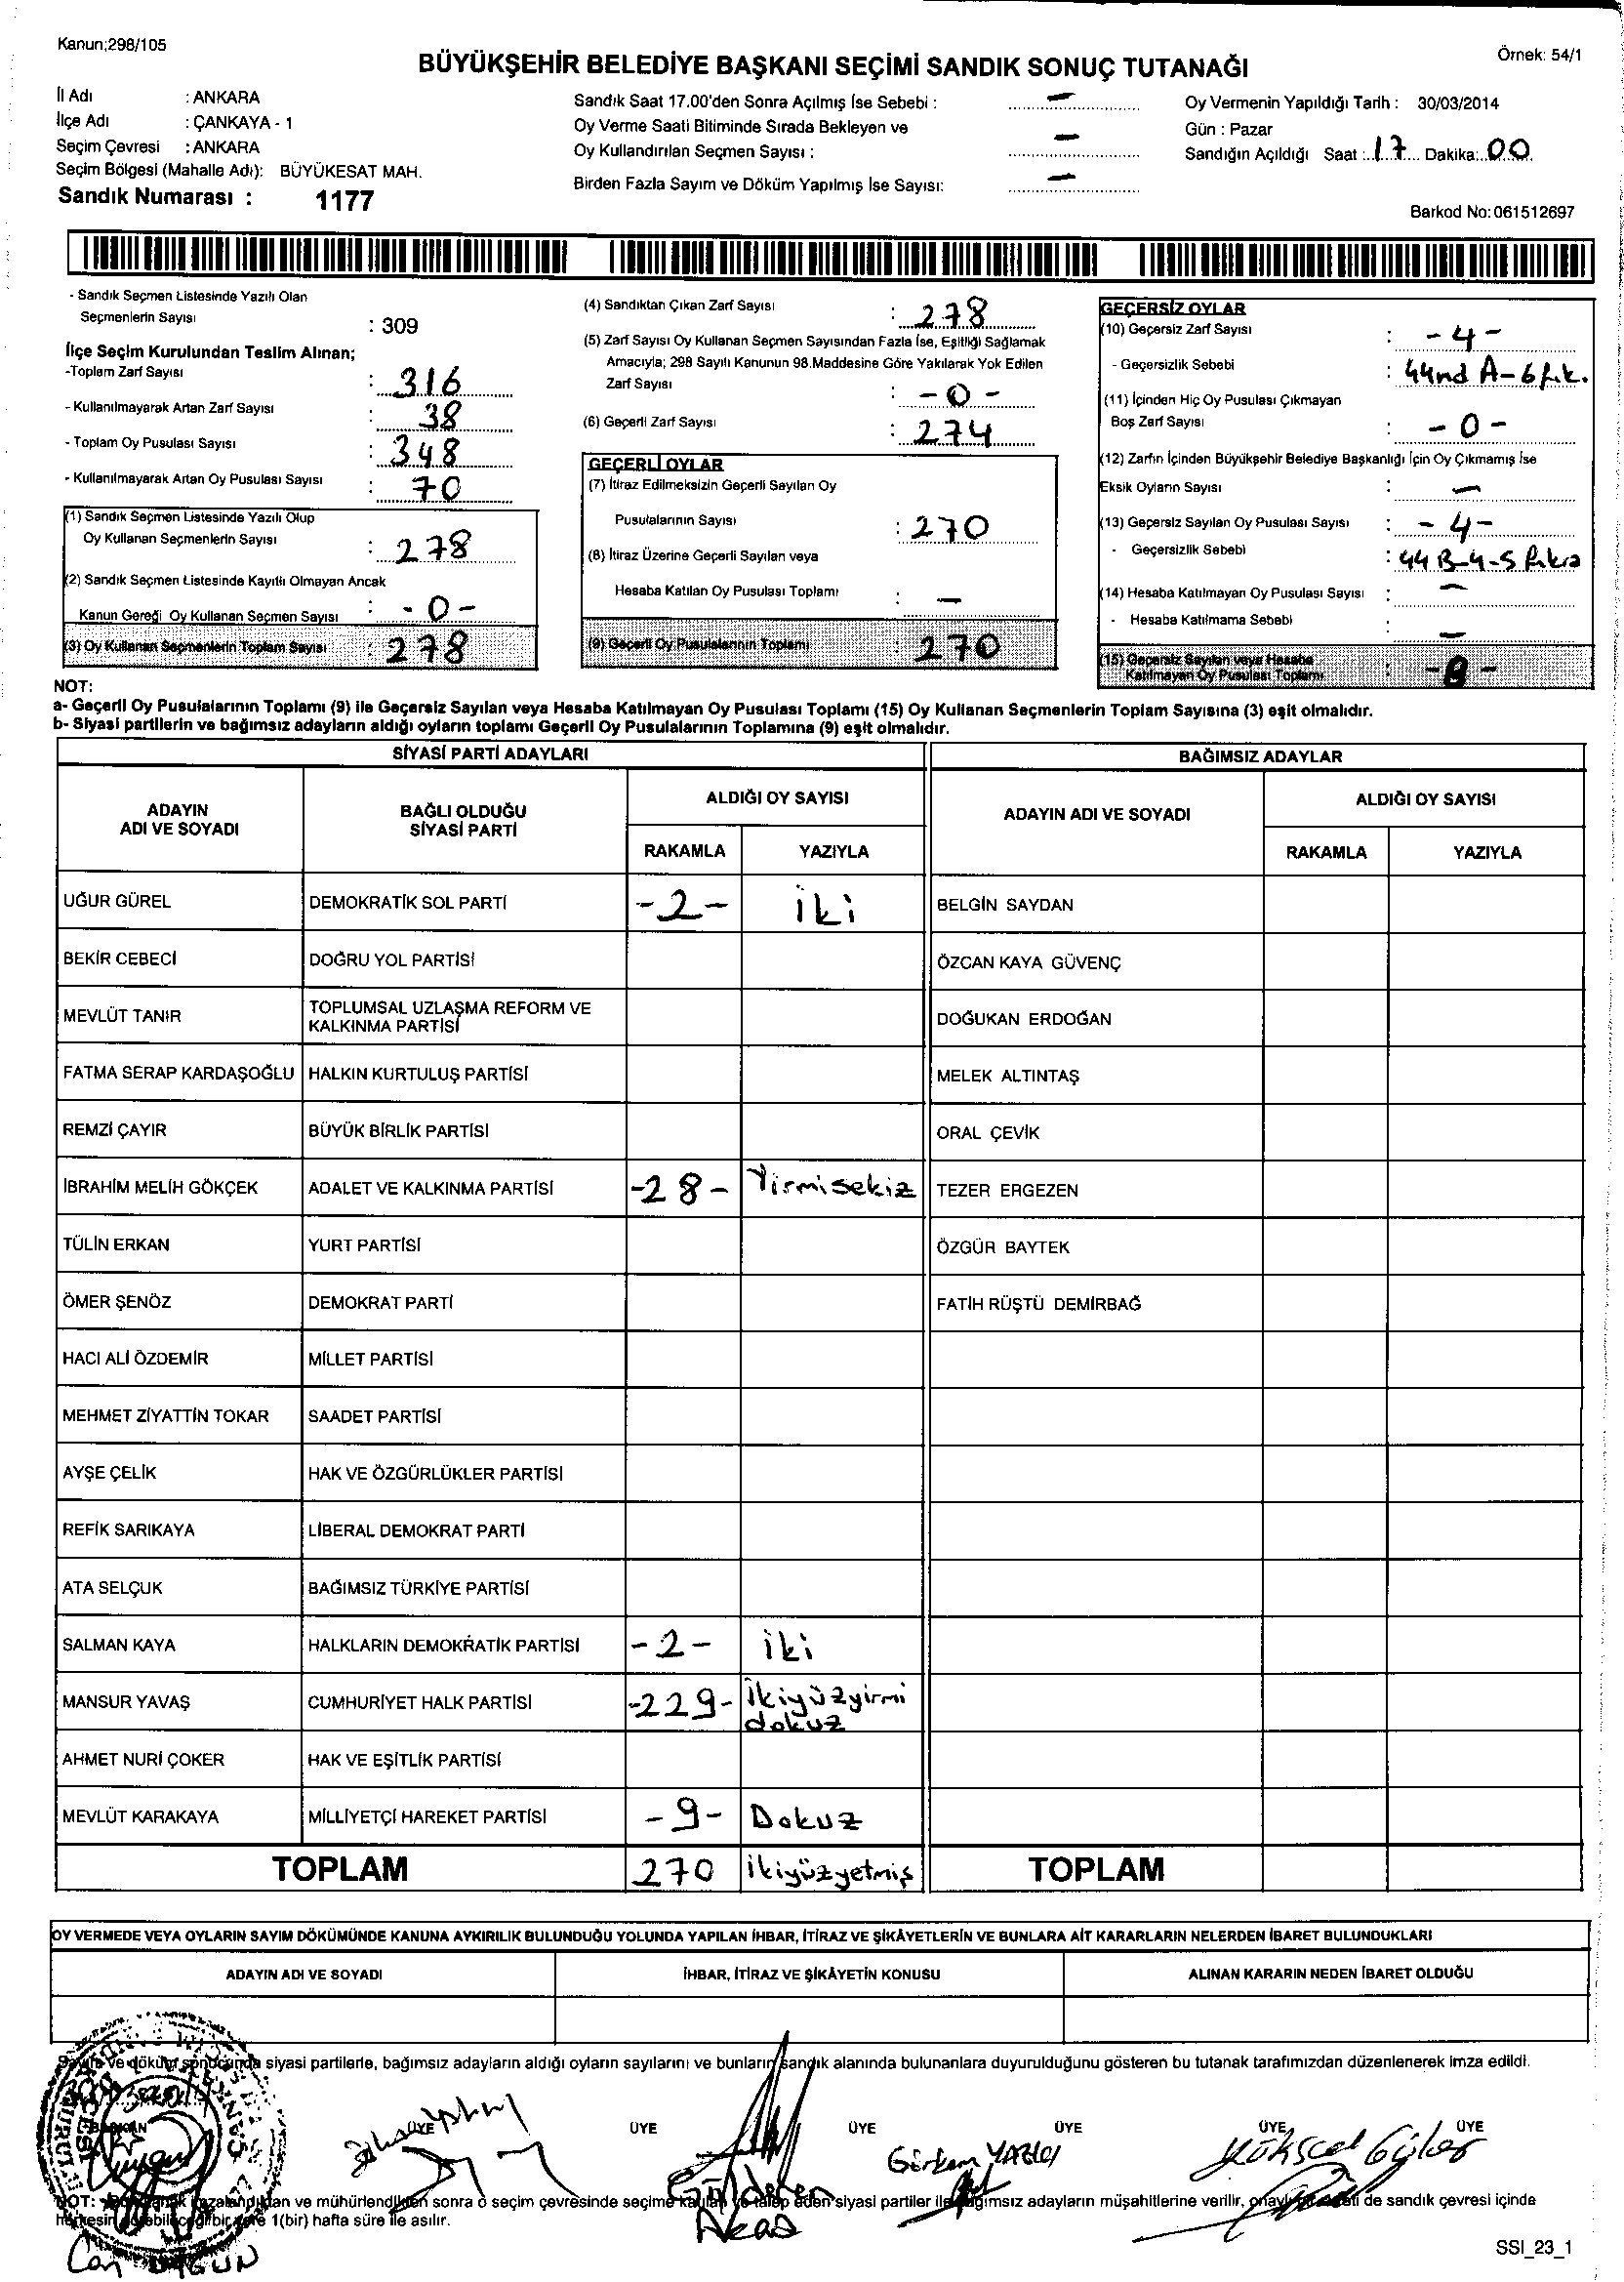 Kanun;298/105
Örnek: 54/1
BÜYÜKŞEHİR BELEDİYE BAŞKANI SEÇİMİ SANDIK SONUÇ TUTANAĞI
İl Adı : ANKARA
İlçe Adı : ÇANKAYA - 1
Seçim Çevresi : ANKARA
Seçim Bölgesi (Mahalle Adı): BÜYÜKESAT MAH.
Sandık Numarası : 1177
Sandık Saat 17.00'den Sonra Açılmış İse Sebebi : –
Oy Verme Saati Bitiminde Sırada Bekleyen ve
Oy Kullandırılan Seçmen Sayısı : –
Birden Fazla Sayım ve Döküm Yapılmış İse Sayısı: –
Oy Vermenin Yapıldığı Tarih : 30/03/2014
Gün : Pazar
Sandığın Açıldığı Saat : 17 Dakika: 00
Barkod No:061512697
- Sandık Seçmen Listesinde Yazılı Olan
Seçmenlerin Sayısı : 309
İlçe Seçim Kurulundan Teslim Alınan;
-Toplam Zarf Sayısı : 316
- Kullanılmayarak Artan Zarf Sayısı : 38
- Toplam Oy Pusulası Sayısı : 348
- Kullanılmayarak Artan Oy Pusulası Sayısı : 70
(1) Sandık Seçmen Listesinde Yazılı Olup
Oy Kullanan Seçmenlerin Sayısı : 278
(2) Sandık Seçmen Listesinde Kayıtlı Olmayan Ancak
Kanun Gereği Oy Kullanan Seçmen Sayısı : - 0 -
(3) Oy Kullanan Seçmenlerin Toplam Sayısı : 278
(4) Sandıktan Çıkan Zarf Sayısı : 278
(5) Zarf Sayısı Oy Kullanan Seçmen Sayısından Fazla İse, Eşitliği Sağlamak
Amacıyla; 298 Sayılı Kanunun 98.Maddesine Göre Yakılarak Yok Edilen
Zarf Sayısı : - 0 -
(6) Geçerli Zarf Sayısı : 274
GEÇERLİ OYLAR
(7) İtiraz Edilmeksizin Geçerli Sayılan Oy
Pusulalarının Sayısı : 270
(8) İtiraz Üzerine Geçerli Sayılan veya
Hesaba Katılan Oy Pusulası Toplamı : –
(9) Geçerli Oy Pusulalarının Toplamı : 270
GEÇERSİZ OYLAR
(10) Geçersiz Zarf Sayısı : - 4 -
- Geçersizlik Sebebi : 44nd A-6 fık.
(11) İçinden Hiç Oy Pusulası Çıkmayan
Boş Zarf Sayısı : - 0 -
(12) Zarfın İçinden Büyükşehir Belediye Başkanlığı İçin Oy Çıkmamış İse
Eksik Oyların Sayısı : –
(13) Geçersiz Sayılan Oy Pusulası Sayısı : - 4 -
- Geçersizlik Sebebi : 44 B-4-5 fıkra
(14) Hesaba Katılmayan Oy Pusulası Sayısı : –
- Hesaba Katılmama Sebebi : –
(15) Geçersiz Sayılan veya Hesaba
Katılmayan Oy Pusulası Toplamı : - 8 -
NOT:
a- Geçerli Oy Pusulalarının Toplamı (9) ile Geçersiz Sayılan veya Hesaba Katılmayan Oy Pusulası Toplamı (15) Oy Kullanan Seçmenlerin Toplam Sayısına (3) eşit olmalıdır.
b- Siyasi partilerin ve bağımsız adayların aldığı oyların toplamı Geçerli Oy Pusulalarının Toplamına (9) eşit olmalıdır.
SİYASİ PARTİ ADAYLARI BAĞIMSIZ ADAYLAR
ADAYIN ADI VE SOYADI BAĞLI OLDUĞU SİYASİ PARTİ ALDIĞI OY SAYISI ADAYIN ADI VE SOYADI ALDIĞI OY SAYISI
RAKAMLA YAZIYLA RAKAMLA YAZIYLA
UĞUR GÜREL DEMOKRATİK SOL PARTİ -2- iki BELGİN SAYDAN
BEKİR CEBECİ DOĞRU YOL PARTİSİ ÖZCAN KAYA GÜVENÇ
MEVLÜT TANIR TOPLUMSAL UZLAŞMA REFORM VE KALKINMA PARTİSİ DOĞUKAN ERDOĞAN
FATMA SERAP KARDAŞOĞLU HALKIN KURTULUŞ PARTİSİ MELEK ALTINTAŞ
REMZİ ÇAYIR BÜYÜK BİRLİK PARTİSİ ORAL ÇEVİK
İBRAHİM MELİH GÖKÇEK ADALET VE KALKINMA PARTİSİ -28- Yirmisekiz TEZER ERGEZEN
TÜLİN ERKAN YURT PARTİSİ ÖZGÜR BAYTEK
ÖMER ŞENÖZ DEMOKRAT PARTİ FATİH RÜŞTÜ DEMİRBAĞ
HACI ALİ ÖZDEMİR MİLLET PARTİSİ
MEHMET ZİYATTİN TOKAR SAADET PARTİSİ
AYŞE ÇELİK HAK VE ÖZGÜRLÜKLER PARTİSİ
REFİK SARIKAYA LİBERAL DEMOKRAT PARTİ
ATA SELÇUK BAĞIMSIZ TÜRKİYE PARTİSİ
SALMAN KAYA HALKLARIN DEMOKRATİK PARTİSİ -2- iki
MANSUR YAVAŞ CUMHURİYET HALK PARTİSİ -229- ikiyüzyirmi dokuz
AHMET NURİ ÇOKER HAK VE EŞİTLİK PARTİSİ
MEVLÜT KARAKAYA MİLLİYETÇİ HAREKET PARTİSİ -9- Dokuz
TOPLAM 270 ikiyüzyetmiş TOPLAM
OY VERMEDE VEYA OYLARIN SAYIM DÖKÜMÜNDE KANUNA AYKIRILIK BULUNDUĞU YOLUNDA YAPILAN İHBAR, İTİRAZ VE ŞİKÂYETLERİN VE BUNLARA AİT KARARLARIN NELERDEN İBARET BULUNDUKLARI
ADAYIN ADI VE SOYADI İHBAR, İTİRAZ VE ŞİKÂYETİN KONUSU ALINAN KARARIN NEDEN İBARET OLDUĞU
ve döküm sonucunda siyasi partilerle, bağımsız adayların aldığı oyların sayılarını ve bunların sandık alanında bulunanlara duyurulduğunu gösteren bu tutanak tarafımızdan düzenlenerek imza edildi.
BAŞKAN ÜYE ÜYE ÜYE ÜYE ÜYE ÜYE
Gürkan YAZICI
Göksel Güler
NOT: imzalandıktan ve mühürlendikten sonra o seçim çevresinde seçime katılan ve talep eden siyasi partiler ile bağımsız adayların müşahitlerine verilir, de sandık çevresi içinde
1(bir) hafta süre ile asılır.
Can UYGUN
SSI_23_1